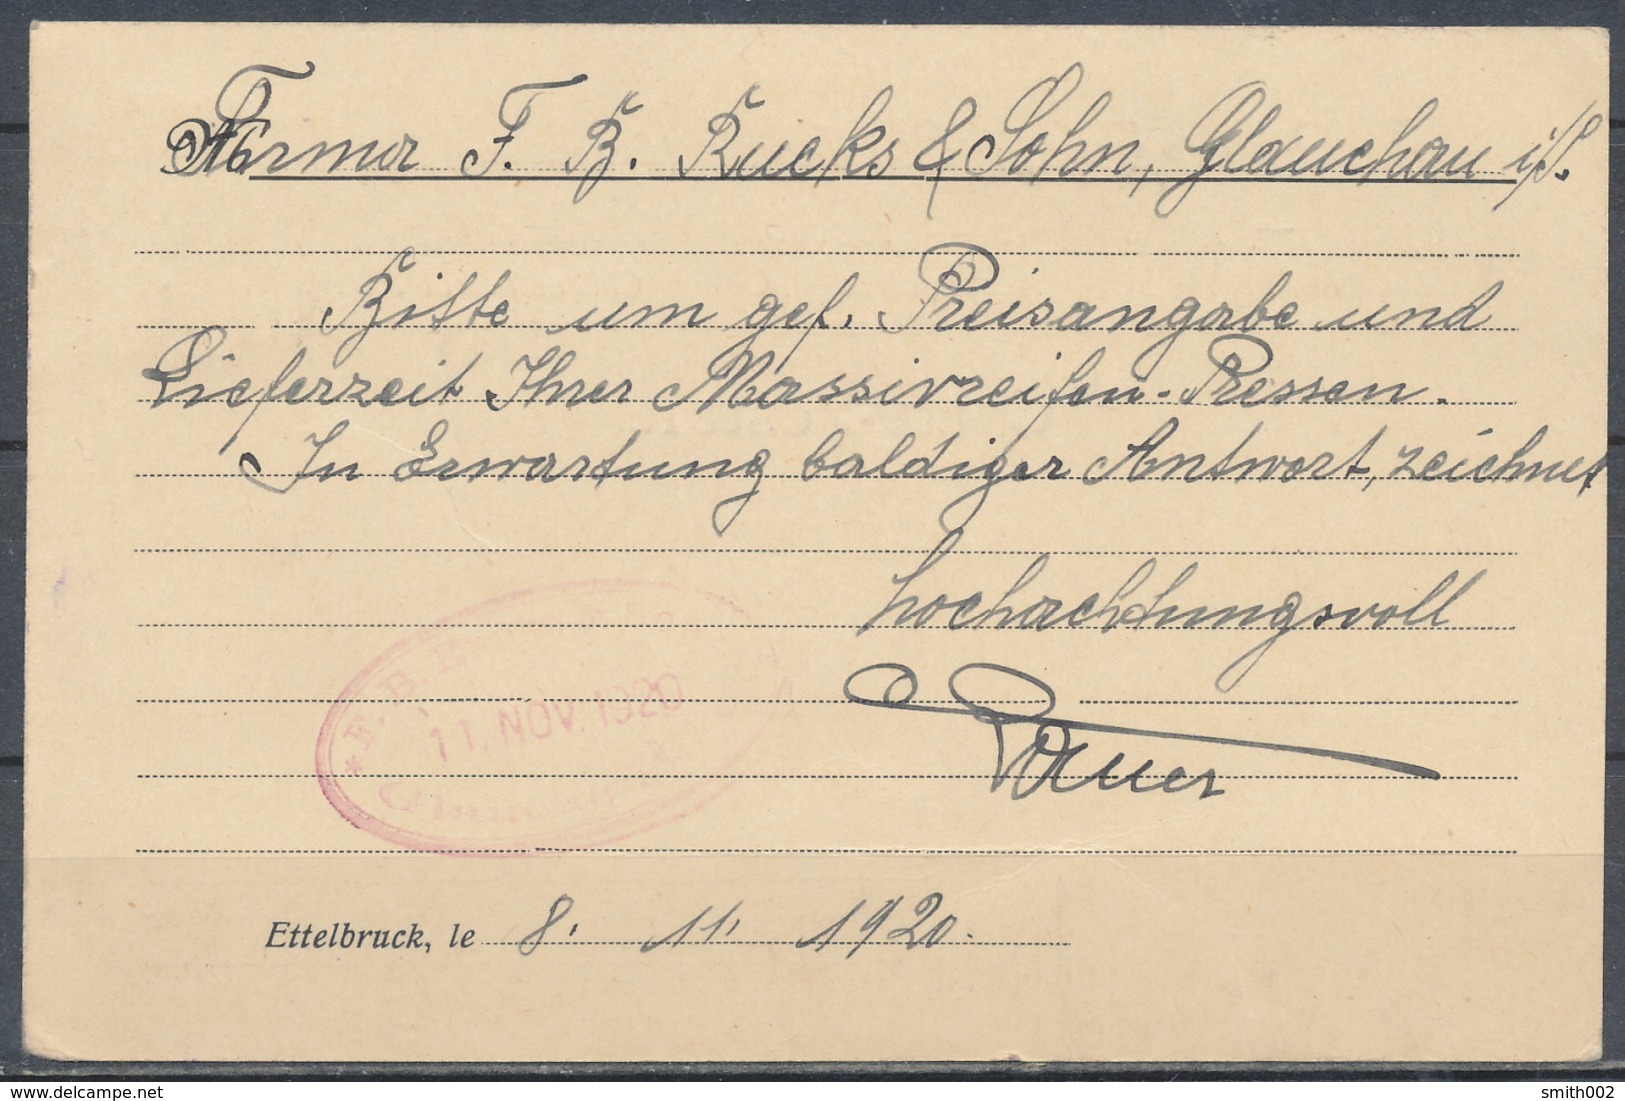 Firma F. B. Rucks & Sohn, Glauchau i/S.
Bitte um gef. Preisangabe und
Lieferzeit Ihrer Massivreifen-Pressen.
In Erwartung baldiger Antwort, zeichnet
hochachtungsvoll
* F. B.
11. NOV. 1920
Ettelbruck, le 8. 11. 1920.
delcampe.net
smith002